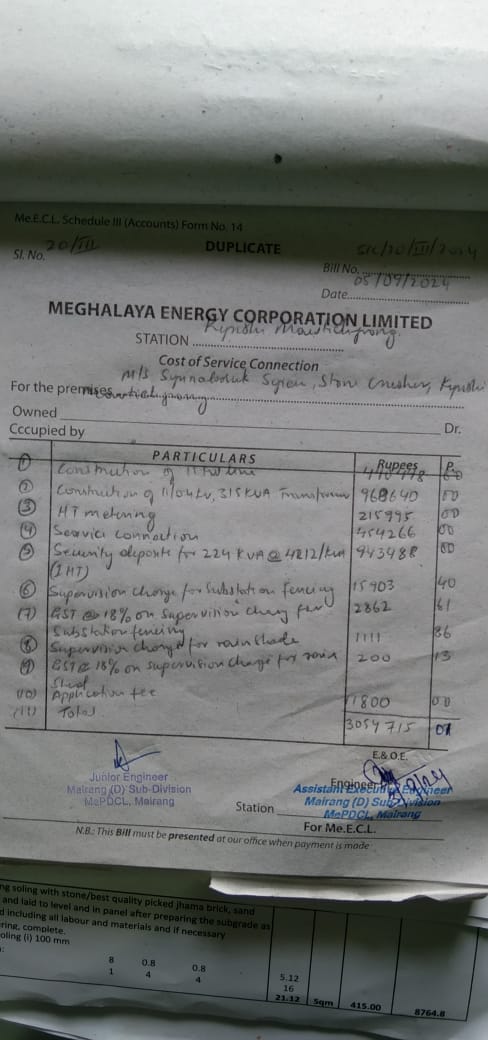 Me.E.C.L. Schedule III (Accounts) Form No. 14
Sl. No. 20/III
DUPLICATE
Bill No. SIC/20/III/2024
Date 05/09/2024
MEGHALAYA ENERGY CORPORATION LIMITED
STATION Kynshi
Cost of Service Connection
For the premises M/S Syiem, Stone Crusher, Kynshi
Owned
Occupied by
Dr.
PARTICULARS Rupees P.
(1) Construction of 11 KV line
(2) Construction of 11/0.4 kv, 315 KVA Transformer 968640 00
(3) HT metering 215995 00
(4) Service connection 454266 00
(5) Security deposit for 224 KVA @ 4212/KVA 943488 00
(IHT)
(6) Supervision charge for substation fencing 15903 40
(7) GST @ 18% on supervision charge for 2862 61
substation fencing
(8) Supervision charge for rain shade 1111 86
(9) GST @ 18% on supervision charge for rain 200 13
shed
(10) Application fee 11800 00
(11) Total 3054715 01
E.& O.E.
Junior Engineer
Mairang (D) Sub-Division
MePDCL, Mairang
Engineer
Assistant Executive Engineer
Mairang (D) Sub-Division
MePDCL, Mairang
Station
For Me.E.C.L.
N.B.: This Bill must be presented at our office when payment is made
ng soling with stone/best quality picked jhama brick, sand
and laid to level and in panel after preparing the subgrade as
d including all labour and materials and if necessary
ring, complete.
oling (i) 100 mm
8 0.8 0.8 5.12
1 4 4 16
21.12 Sqm 415.00 8764.8